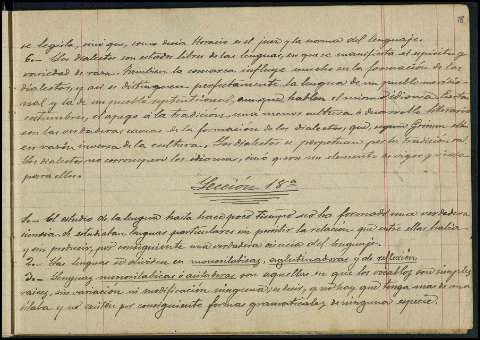 18
se legisla, sino que, como decia Horacio es el juez y la norma del lenguaje.
6.- Los dialectos son estados libres de las lenguas, en que se manifiesta el espíritu y
variedad de raza. Tambien la comarca influye mucho en la formación de los
dialectos, y así se distinguen perfectamente la lengua de un pueblo meridio-
nal y la de un pueblo septentrional, aunque hablen el mismo idioma. Las
costumbres, el apego á la tradición, una menor cultura ó desarrollo literario
son las verdaderas causas de la formación de los dialectos, que, segun Grimm están
en razón inversa de la cultura. Los dialectos se perpetuan por la tradición
Los dialectos no corrompen los idiomas, sinó que son un elemento de vigor y
para ellos.
Lección 18ª
1.- El estudio de la lengua hasta hace poco tiempo no ha formado una verdadera
ciencia. Se estudiaban lenguas particulares sin percibir la relacion que entre ellas habia
y sin producir, por consiguiente una verdadera ciencia del lenguaje.
2.- Las lenguas se dividen en monosilábicas, aglutinadoras y de reflexión
3.- Lenguas monosilábicas ó aisladoras son aquellas en que los vocablos son simples
raices, sin variación ni modificación ninguna; es decir, que no hay que tenga mas de una
sílaba y no existen por consiguiente formas gramaticales de ninguna especie.